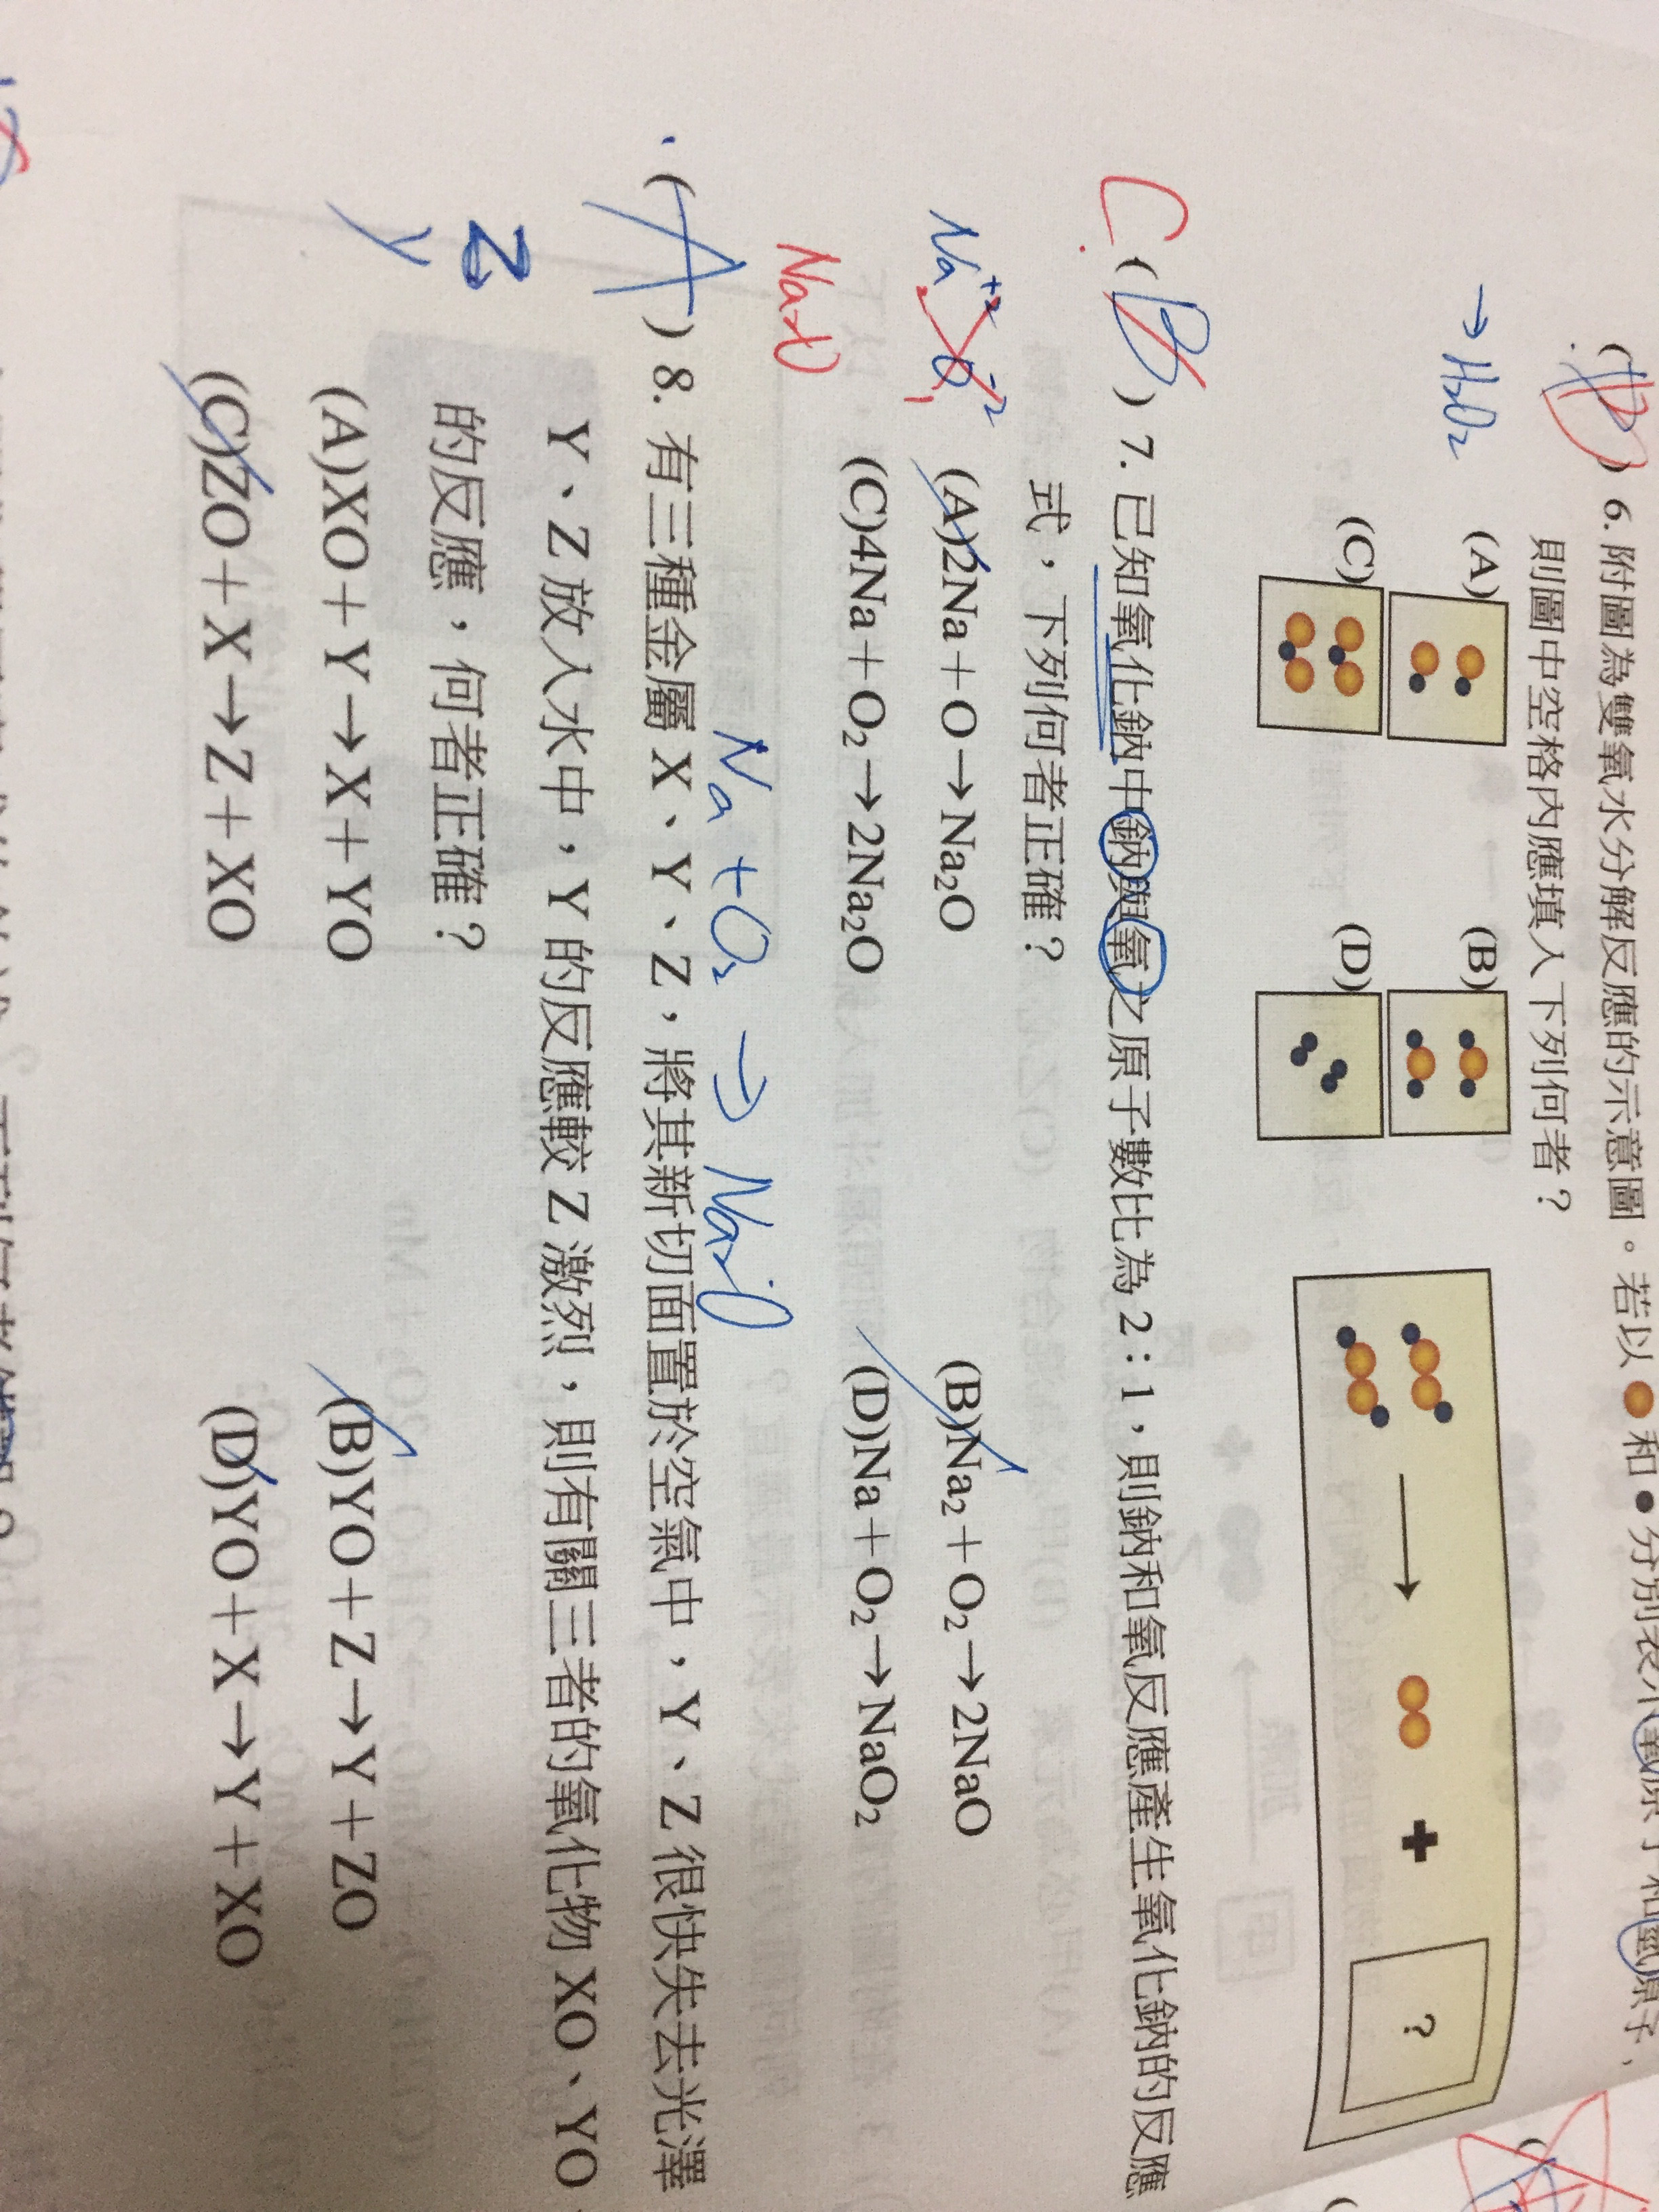 6. 附圖為雙氧水分解反應的示意圖。若以 和 分別表示氧原子和氫原子,
則圖中空格內應填入下列何者?
→ H₂O₂
(A) (B)
(C) (D)
+ ?
C ( B ) 7. 已知氧化鈉中鈉與氧之原子數比為 2:1,則鈉和氧反應產生氧化鈉的反應
式,下列何者正確?
Na⁺² O⁻²
2 1
(A)2Na+O→Na₂O (B)Na₂+O₂→2NaO
(C)4Na+O₂→2Na₂O (D)Na+O₂→NaO₂
Na₂O
Na + O₂ → Na₂O
( A ) 8. 有三種金屬 X、Y、Z,將其新切面置於空氣中,Y、Z 很快失去光澤
Y、Z 放入水中,Y 的反應較 Z 激烈,則有關三者的氧化物 XO、YO
的反應,何者正確?
Z
Y
(A)XO+Y→X+YO (B)YO+Z→Y+ZO
(C)ZO+X→Z+XO (D)YO+X→Y+XO